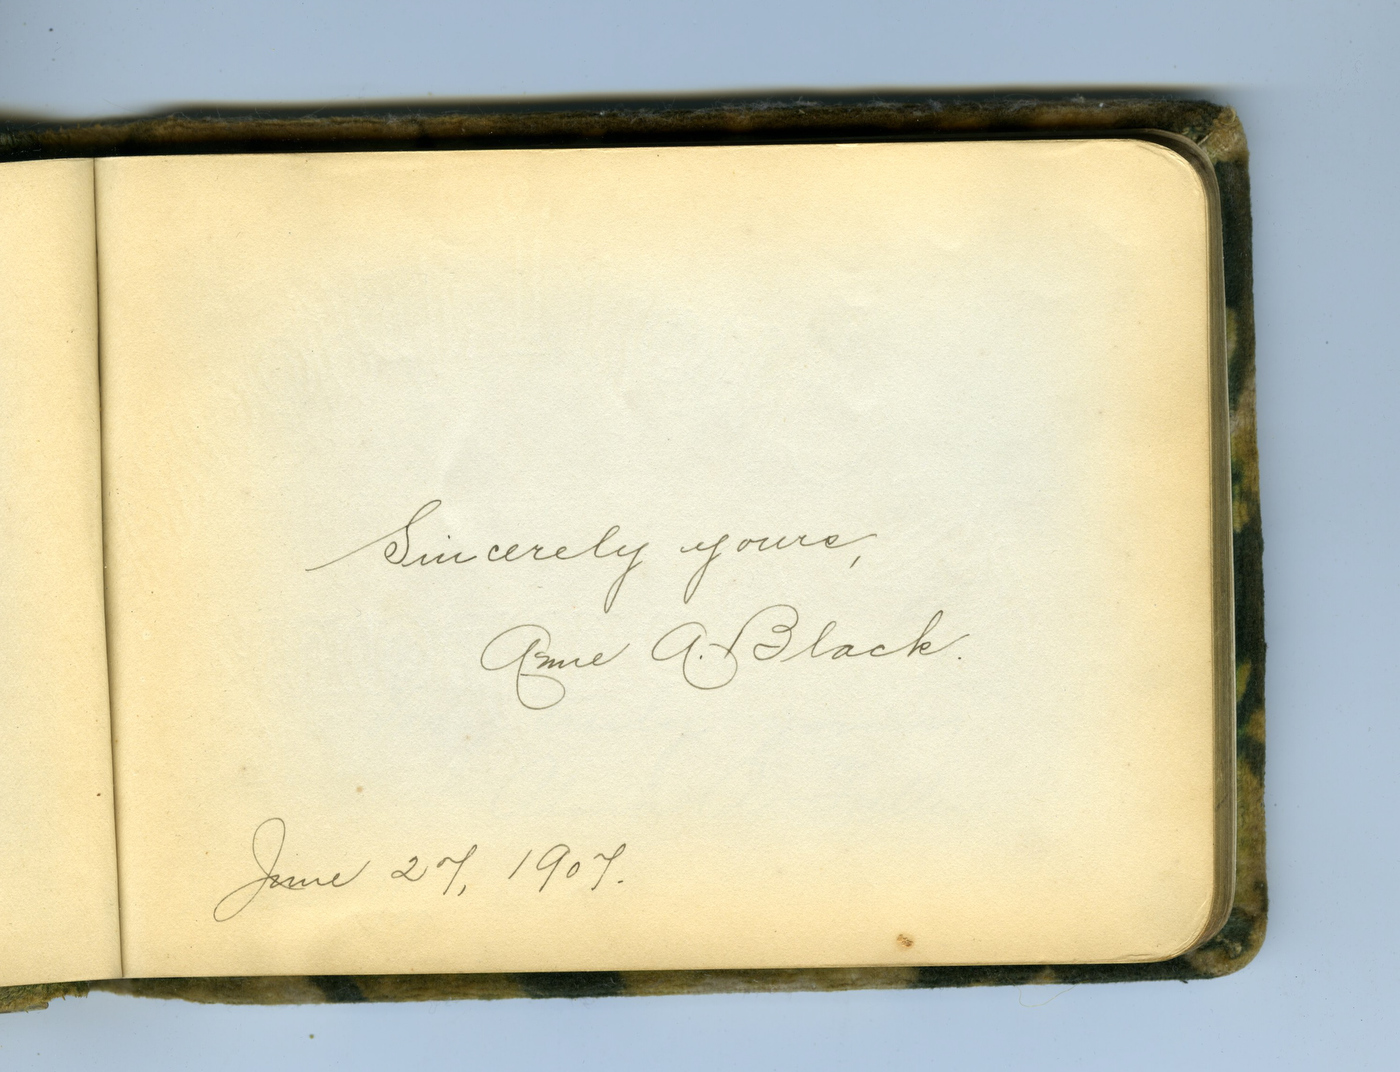 Sincerely yours,
Anne A. Black.
June 27, 1907.